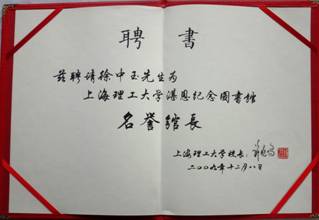 聘書
茲聘請徐中玉先生为
上海理工大学湛恩纪念图書館
名誉館長
上海理工大学校長：
二〇〇九年十二月八日